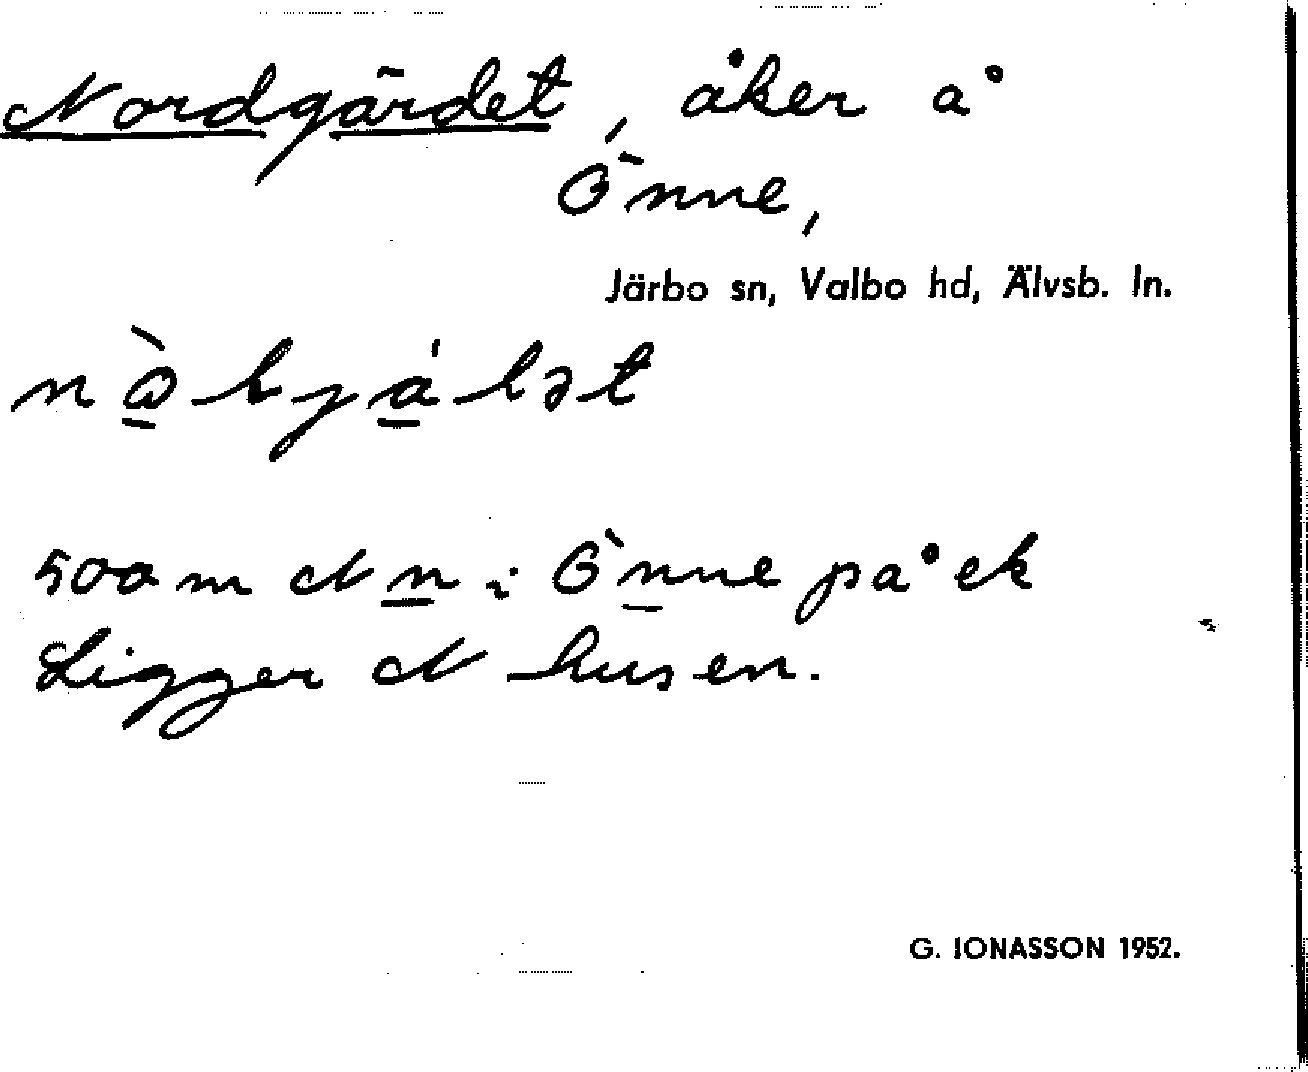 Nordgärdet, åker å
Önne,
Järbo sn, Valbo hd, Älvsb. ln.
500 m N n i Önne på ek
Ligger N husen.
G. IONASSON 1952.